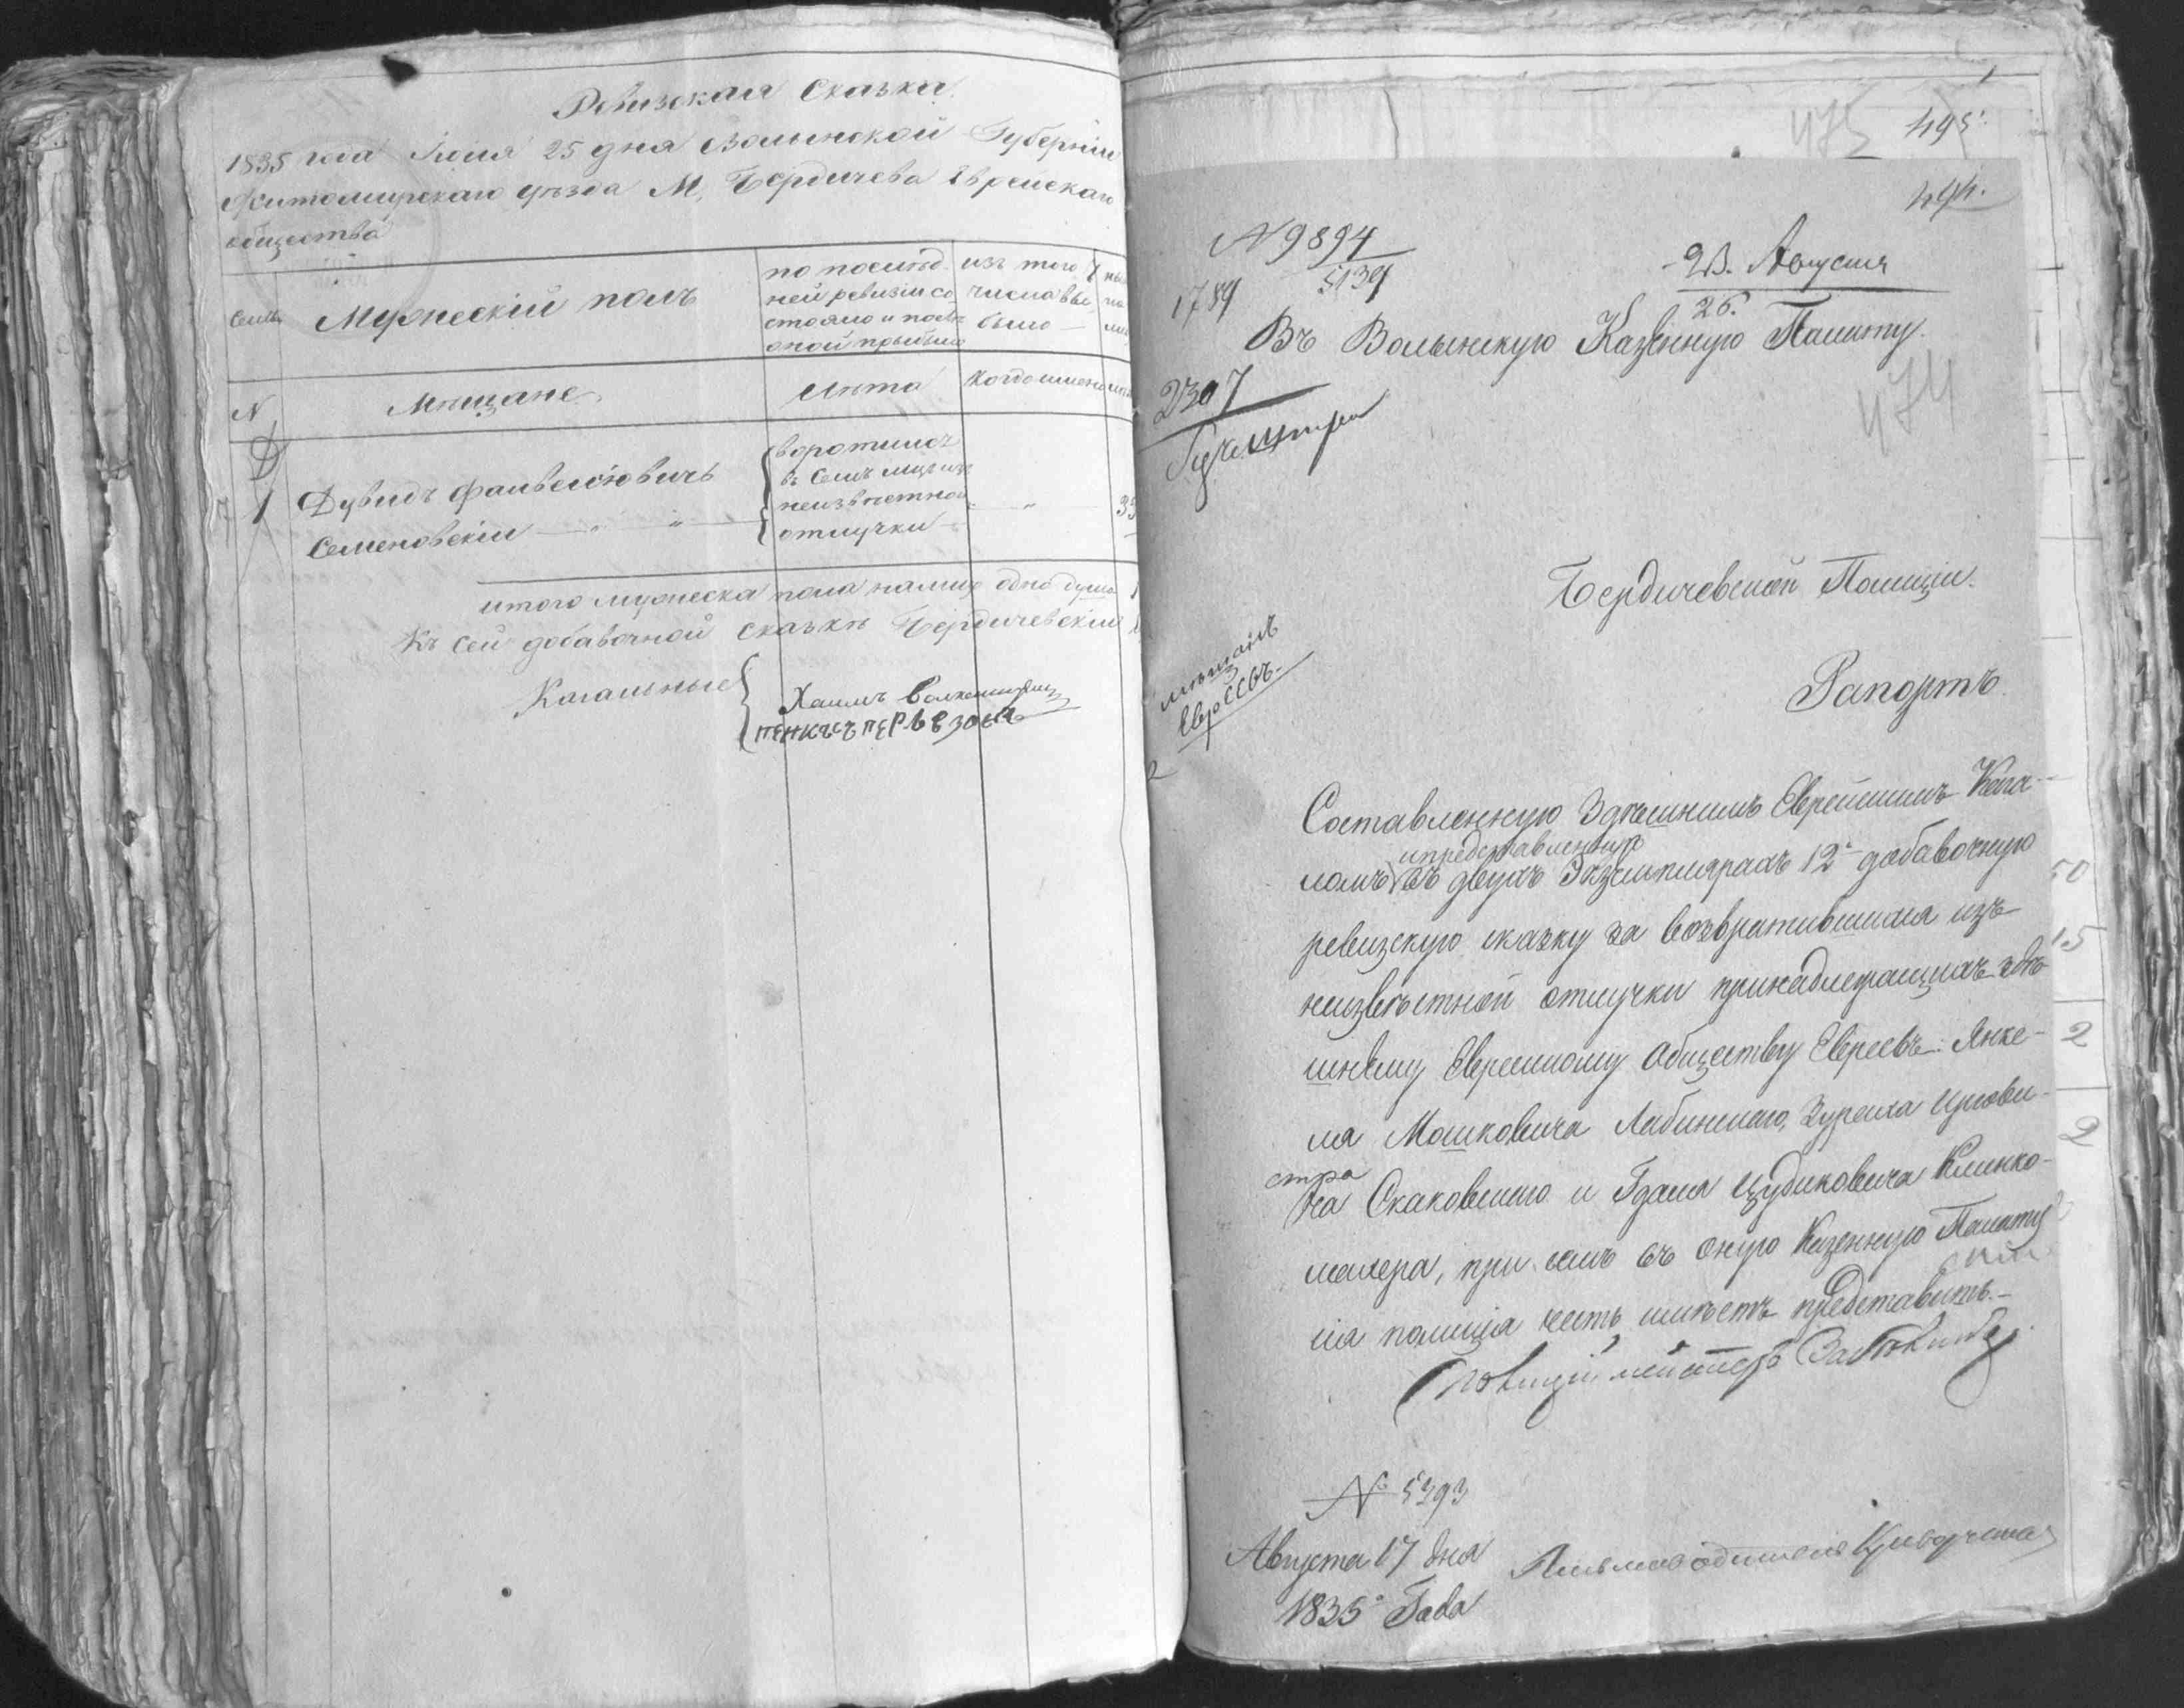 Ревизская Сказка
1835 года Июля 25 дня Волынской Губернiи
Житомирскаго уѣзда М. Бердичева Еврейскаго
общества
Мужескiй полъ
по послѣд
ней ревизiи со
стояло и послѣ
оной прибыло
изъ того
числа вы
было
N
Мѣщане
Лѣта
Когда именно
1
Дувидъ Файвелiовичъ
Семеновскiй
воротился
въ Семъ мѣсяцѣ
неизвѣстной
отлучки
33
итого мужеска пола налицо одна душа 1
Къ сей добавочной сказкѣ Бердичевскiй
Кагальные
Хаимъ
475
495.
494.
N 9894
5139
1789
23. Августа
26.
Въ Волынскую Казенную Палату.
2307
474
Бердичевской Полицiи.
Рапортъ
мѣщанъ
Евреевъ.
Составленную Здѣшнимъ Еврейскимъ Кага-
ломъ и представленную въ двухъ Экземплярахъ 12ю добавочную
ревизскую сказку за возвратившихся изъ
неизвѣстной отлучки принадлежащихъ здѣ
шнѣму Еврейскому Обществу Евреевъ: Янке-
ля Мошковича Лабинскаго, Зурыха
стра
на Скаковскаго и Гдаля Цудиковича Клинко-
малера, при семъ въ оную Казенную Палату
iя полицiя честь имѣетъ представить.-
Полицiймейстеръ
50
15
2
2
№ 5393
Августа 17 дня
1835го Года
Письмоводитель